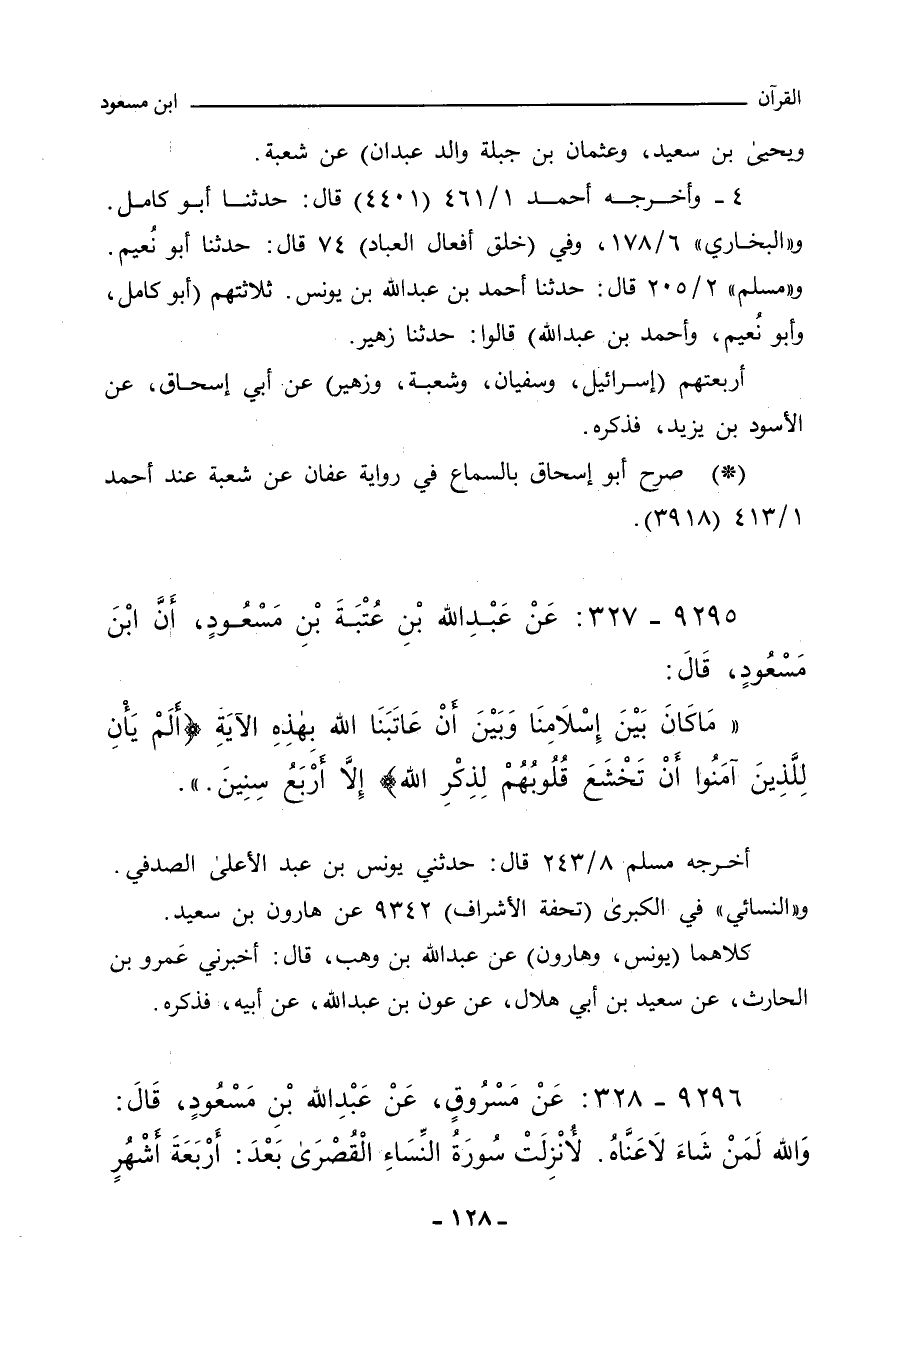 القرآن ــــــــــــــــ ابن مسعود
ويحيىٰ بن سعيد، وعثمان بن جبلة والد عبدان) عن شعبة.
٤ ـ وأخرجه أحمد ٤٦١/١ (٤٤٠١) قال: حدثنا أبو كامل.
و«البخاري» ١٧٨/٦، وفي (خلق أفعال العباد) ٧٤ قال: حدثنا أبو نُعيم.
و«مسلم» ٢٠٥/٢ قال: حدثنا أحمد بن عبدالله بن يونس. ثلاثتهم (أبو كامل،
وأبو نُعيم، وأحمد بن عبدالله) قالوا: حدثنا زهير.
أربعتهم (إسرائيل، وسفيان، وشعبة، وزهير) عن أبي إسحاق، عن
الأسود بن يزيد، فذكره.
(*) صرح أبو إسحاق بالسماع في رواية عفان عن شعبة عند أحمد
٤١٣/١ (٣٩١٨).
٩٢٩٥ ـ ٣٢٧: عَنْ عَبْدِالله بْنِ عُتْبَةَ بْنِ مَسْعُودٍ، أَنَّ ابْنَ
مَسْعُودٍ، قَالَ:
« مَاكَانَ بَيْنَ إِسْلَامِنَا وَبَيْنَ أَنْ عَاتَبَنَا الله بِهٰذِهِ الآيَةِ ﴿أَلَمْ يَأْنِ
لِلَّذِينَ آمَنُوا أَنْ تَخْشَعَ قُلُوبُهُمْ لِذِكْرِ الله﴾ إِلَّا أَرْبَعُ سِنِينَ.».
أخرجه مسلم ٢٤٣/٨ قال: حدثني يونس بن عبد الأعلىٰ الصدفي.
و«النسائي» في الكبرىٰ (تحفة الأشراف) ٩٣٤٢ عن هارون بن سعيد.
كلاهما (يونس، وهارون) عن عبدالله بن وهب، قال: أخبرني عَمرو بن
الحارث، عن سعيد بن أبي هلال، عن عون بن عبدالله، عن أبيه، فذكره.
٩٢٩٦ ـ ٣٢٨: عَنْ مَسْرُوقٍ، عَنْ عَبْدِالله بْنِ مَسْعُودٍ، قَالَ:
وَالله لَمَنْ شَاءَ لَاعَنَّاهُ. لَأُنْزِلَتْ سُورَةُ النِّسَاءِ الْقُصْرَىٰ بَعْدَ: أَرْبَعَةَ أَشْهُرٍ
ـ ١٢٨ ـ